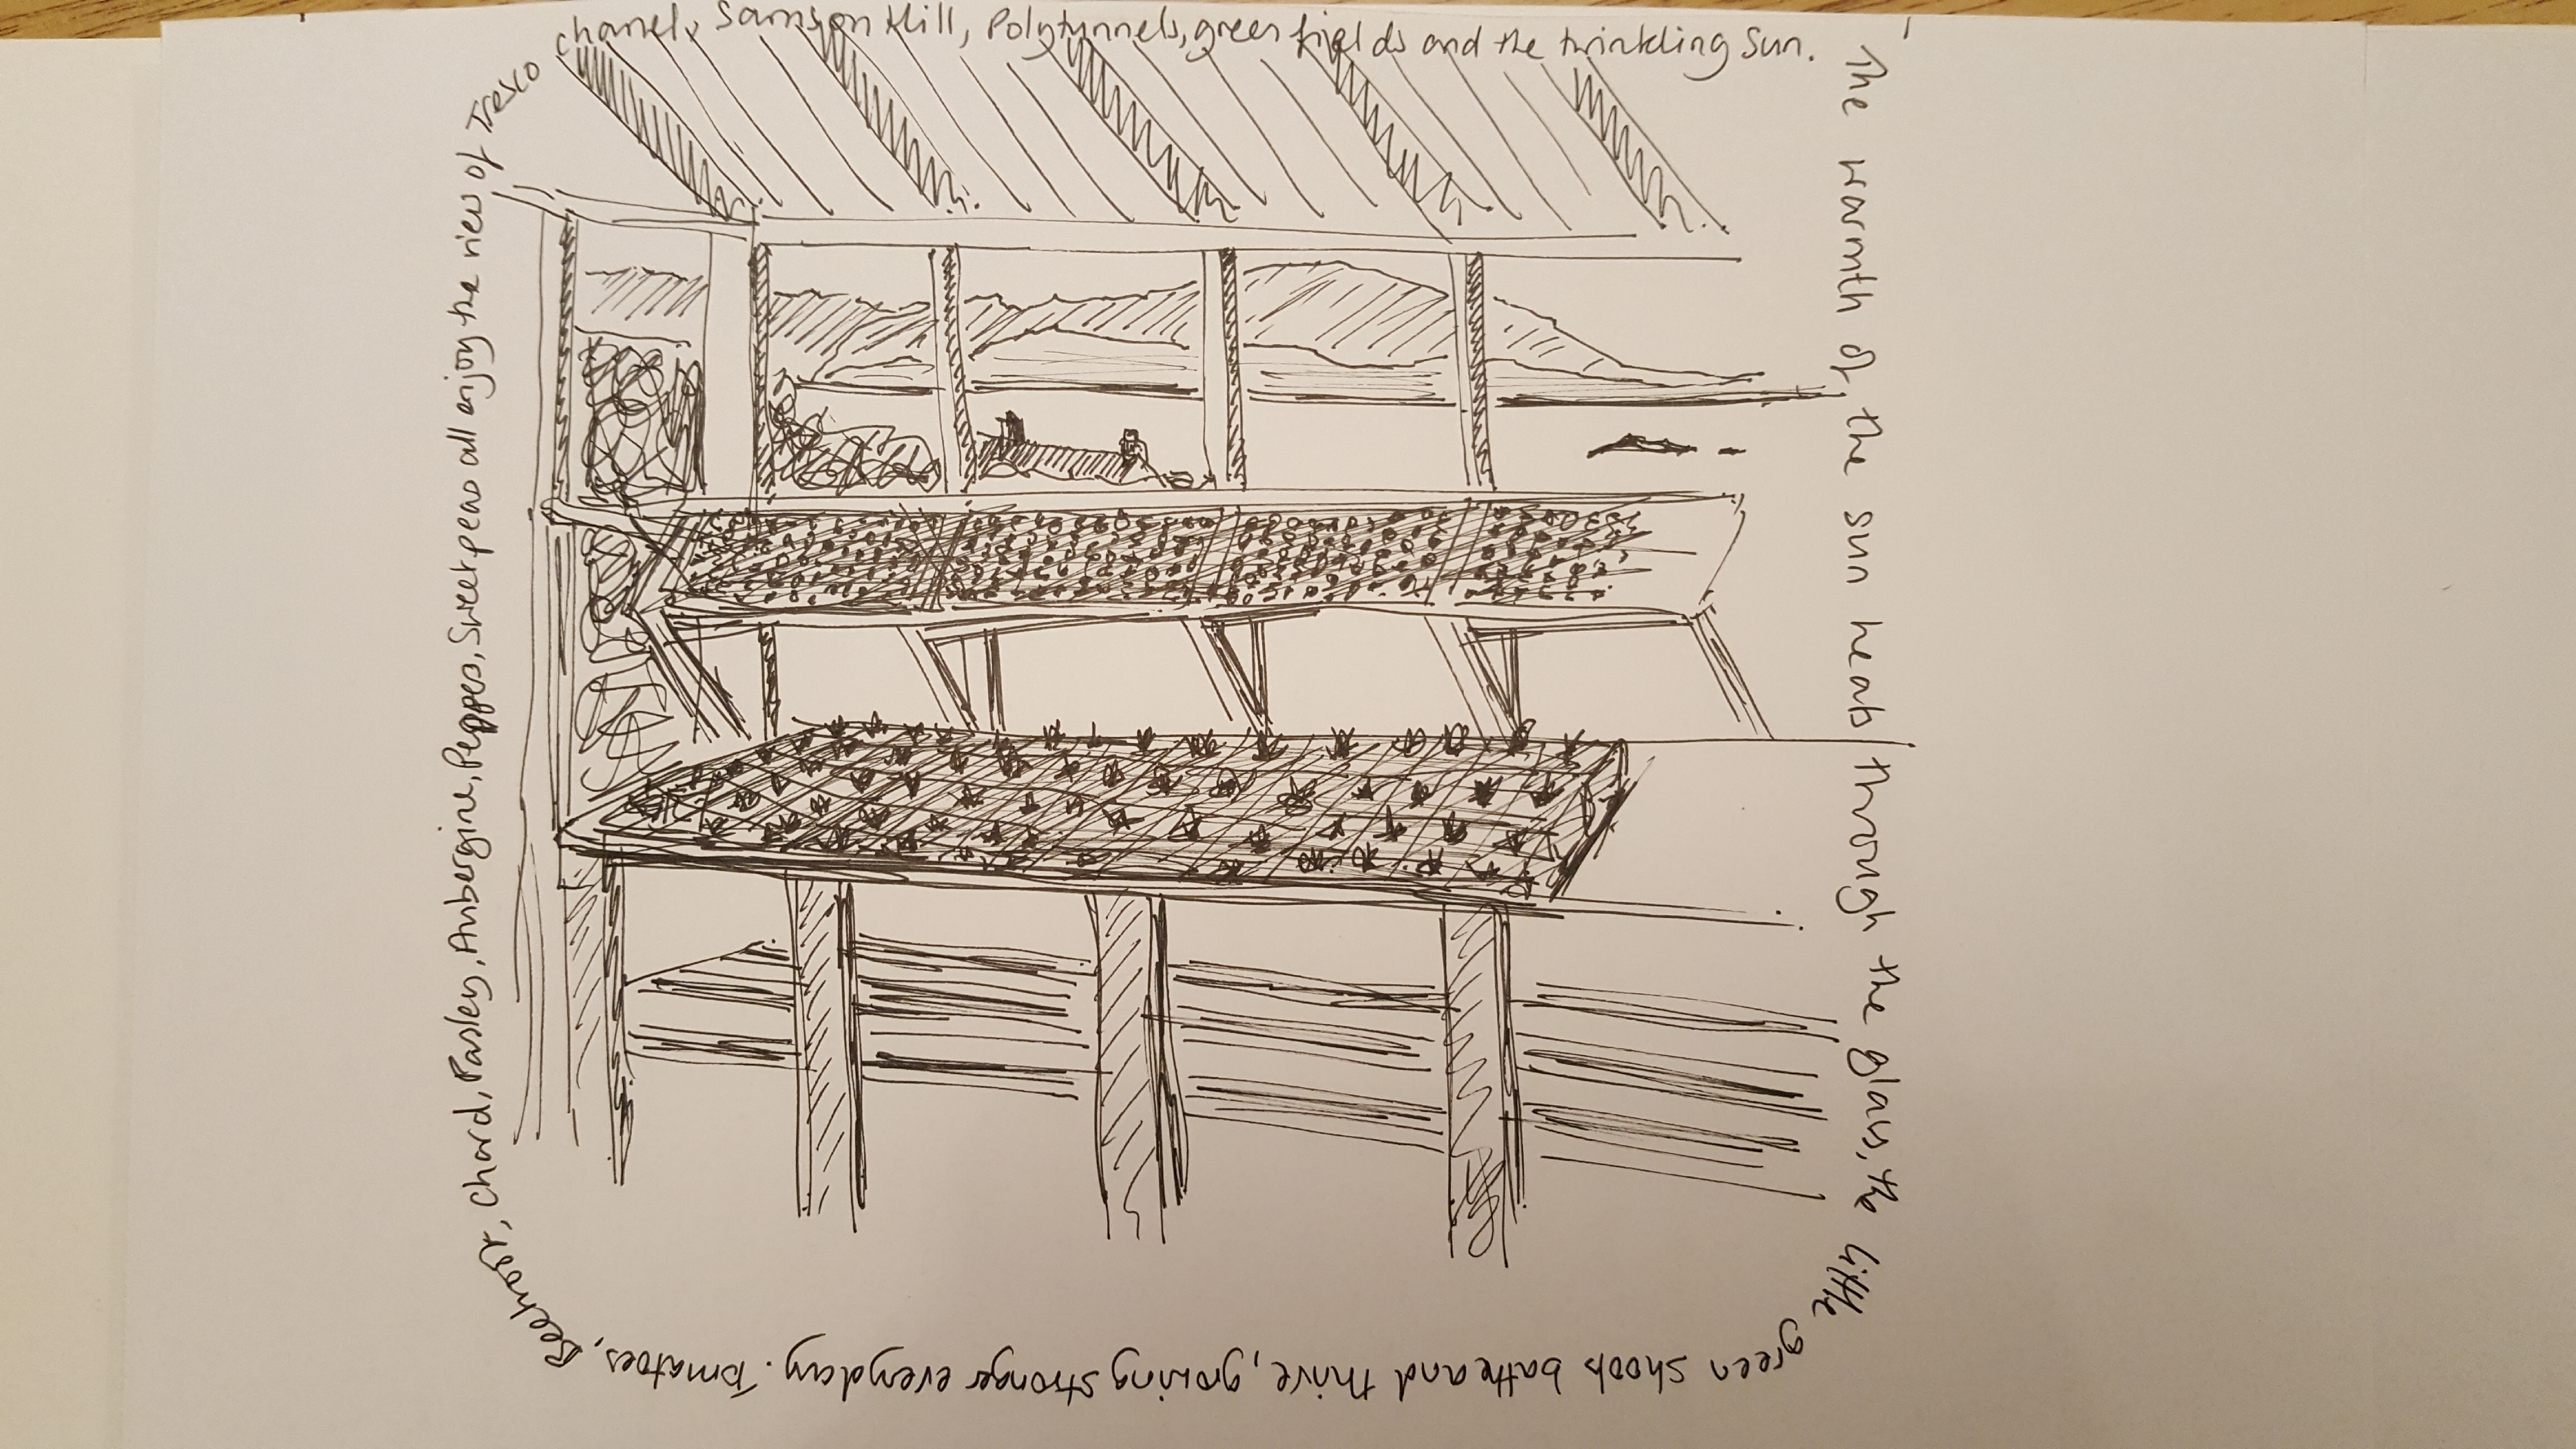 The warmth of the sun heats through the glass, the little
green shoots bathe and thrive, growing stronger everyday. Tomatoes, Beetroot,
Chard, Parsley, Aubergine, Peppers, Sweetpeas all enjoy the view of Tresco
chanel, Samson Hill, Polytunnels, green fields and the twinkling sun.